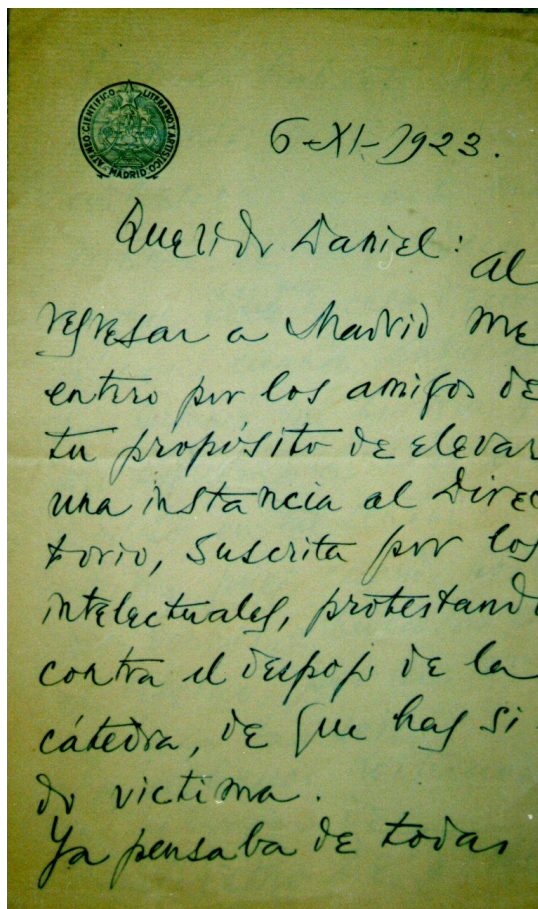 ATENEO CIENTIFICO LITERARIO Y ARTISTICO
MADRID
6-XI-1923.
Querido Daniel: Al
regresar a Madrid me
entero por los amigos de
tu propósito de elevar
una instancia al Direc
torio, suscrita por los
intelectuales, protestando
contra el despojo de la
cátedra, de que has si-
do victima.
Ya pensaba de todas